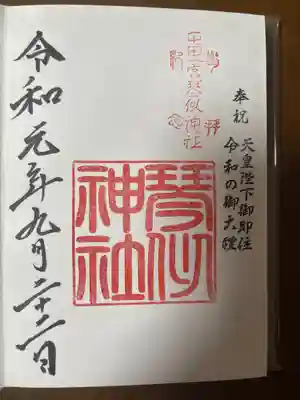 奉祝
天皇陛下御即位
令和の御大禮
琴似神社
琴似
神社
令和元年九月二十二日